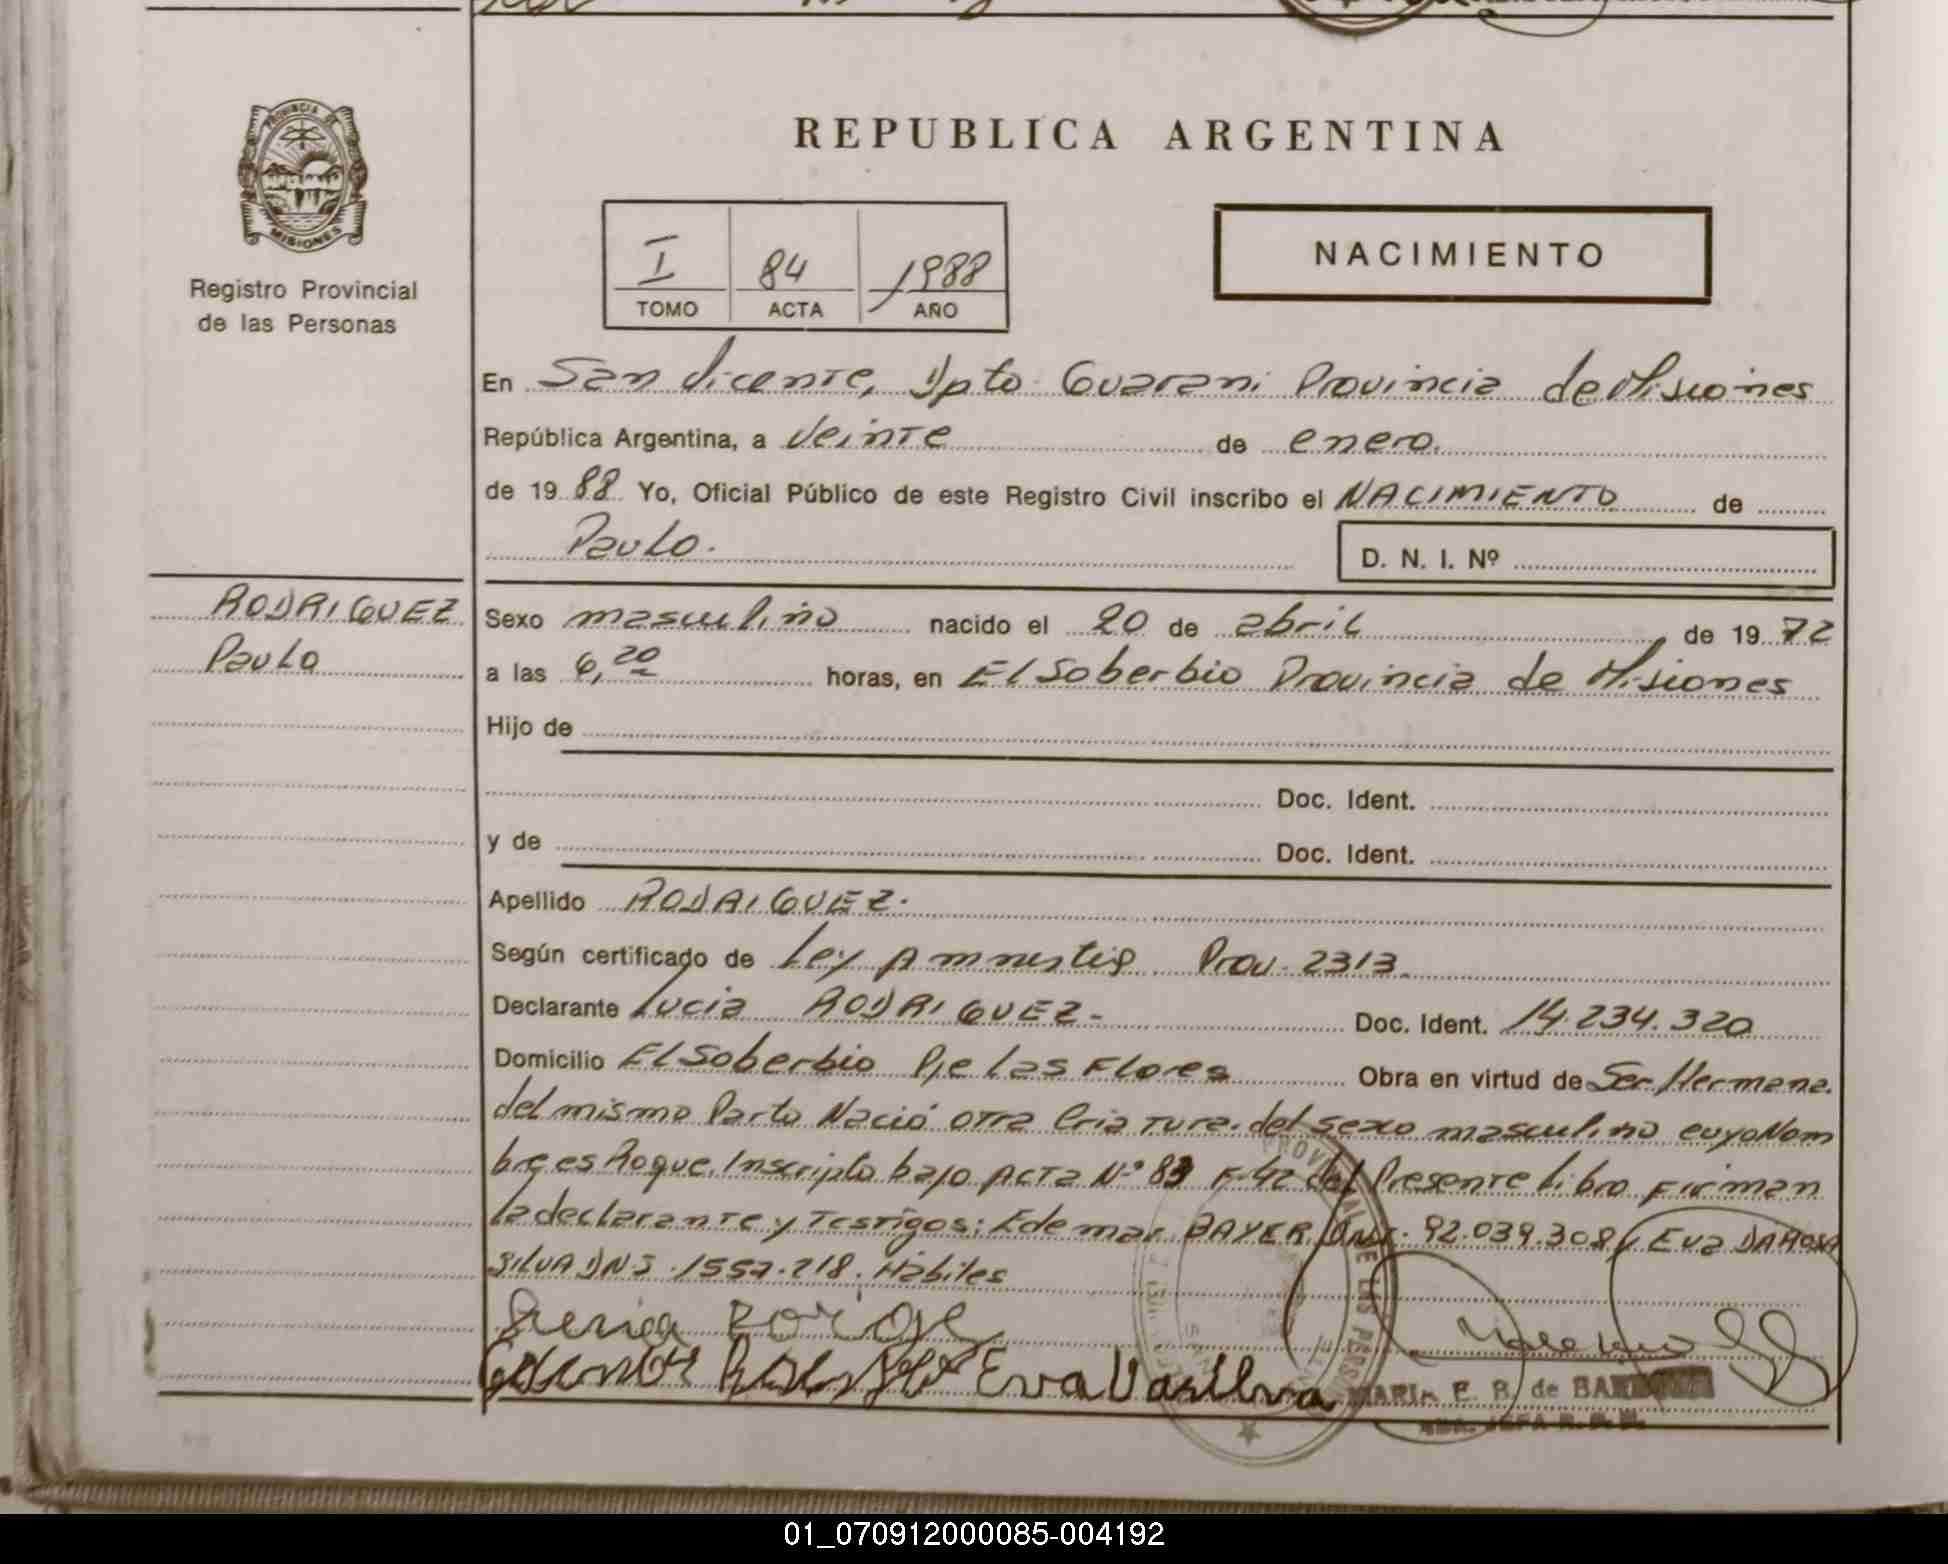 PROVINCIA DE
MISIONES
Registro Provincial
de las Personas
REPUBLICA ARGENTINA
I 84 1988
TOMO ACTA AÑO
NACIMIENTO
En San Vicente, Dpto Guarani Provincia de Misiones
República Argentina, a Veinte de enero.
de 19 88 Yo, Oficial Público de este Registro Civil inscribo el NACIMIENTO de
Paulo.
D. N. I. Nº
RODRIGUEZ
Paulo
Sexo masculino nacido el 20 de abril de 19 72
a las 6,20 horas, en El Soberbio Provincia de Misiones
Hijo de
Doc. Ident.
y de Doc. Ident.
Apellido RODRIGUEZ.
Según certificado de Ley Amnistia Prov. 2313.
Declarante Lucia RODRIGUEZ- Doc. Ident. 14.234.320
Domicilio El Soberbio Pje las Flores Obra en virtud de Ser Hermana.
del mismo Parto Nació otra Criatura. del sexo masculino cuyo Nom
bre es Roque. Inscripto bajo Acta Nº 83 F-42 del Presente libro Firman
la declarante y Testigos: Edemar BAYER DNI. 92.039.308 y Eva DAROSA
SILVA DNI .1557.218. Hábiles
Eva Dasilva
MARIA E. B. de
01_070912000085-004192